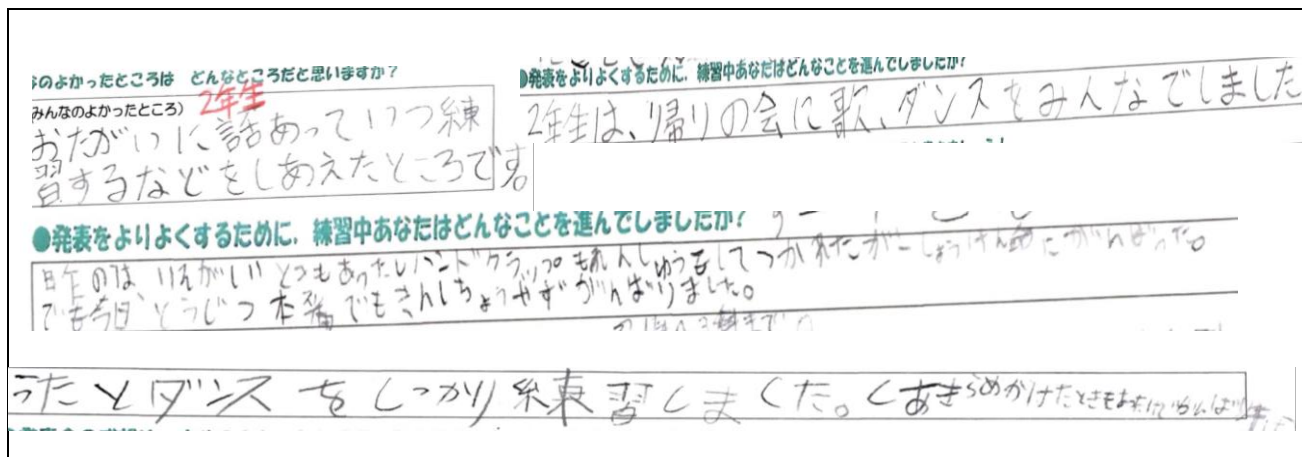 なのよかったところは どんなところだと思いますか？
みんなのよかったところ)
2年生
おたがいに話あっていつ練
習するなどをしあえたところです。
●発表をよりよくするために、練習中あなたはどんなことを進んでしましたか?
2年生は、帰りの会に歌、ダンスをみんなでしました
●発表をよりよくするために、練習中あなたはどんなことを進んでしましたか?
ハンドクラップもれんしゅうをしてつかれたが一しょうけん命にがんばった。
でも今日、とうじつ本番でもきんちょうせずがんばりました。
うたとダンスをしっかり練習しました。くあきらめかけたときも